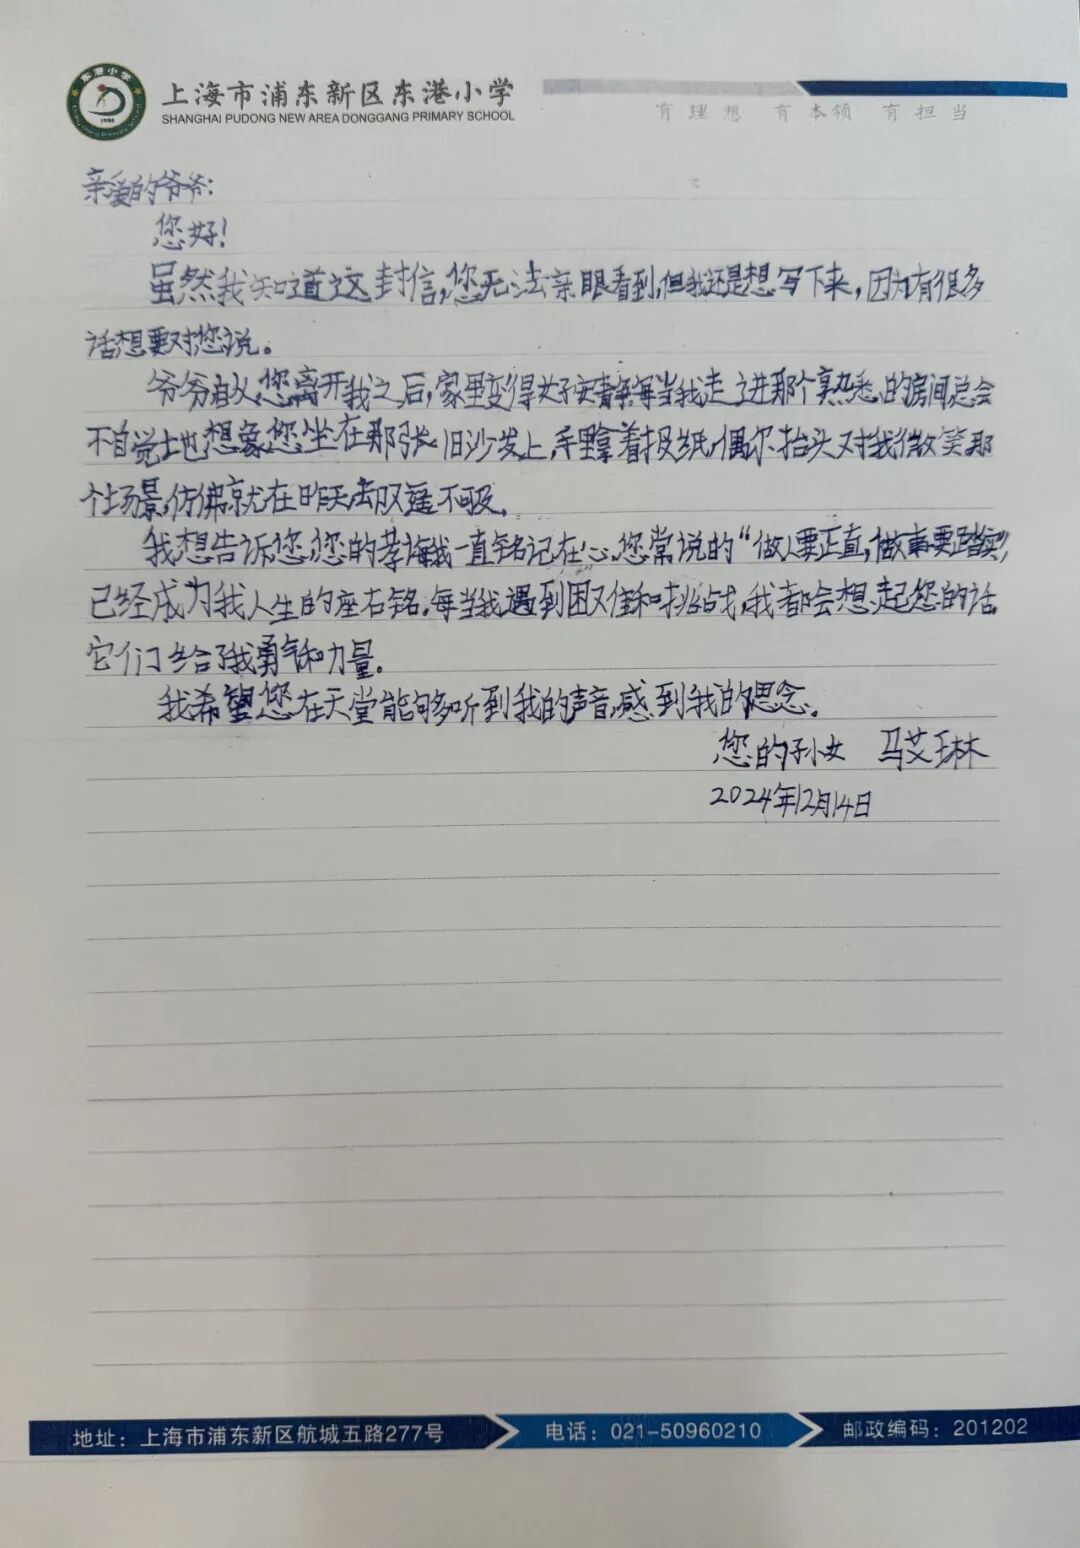 东港小学
1986
上海市浦东新区东港小学
SHANGHAI PUDONG NEW AREA DONGGANG PRIMARY SCHOOL
有理想 有本领 有担当
亲爱的爷爷:
您好!
虽然我知道这封信,您无法亲眼看到,但我还是想写下来,因为有很多
话想要对您说。
爷爷自从您离开我之后,家里变得好安静每当我走进那个熟悉的房间总会
不自觉地想象您坐在那张旧沙发上,手里拿着报纸,偶尔抬头对我微笑那
个场景,仿佛就在昨天却又遥不可及。
我想告诉您,您的教诲我一直铭记在心,您常说的“做人要正直,做事要踏实”,
已经成为我人生的座右铭。每当我遇到困难和挑战,我都会想起您的话,
它们给了我勇气和力量。
我希望您在天堂能够听到我的声音,感到我的思念。
您的孙女 马艾琳
2024年12月14日
地址:上海市浦东新区航城五路277号
电话:021-50960210
邮政编码:201202